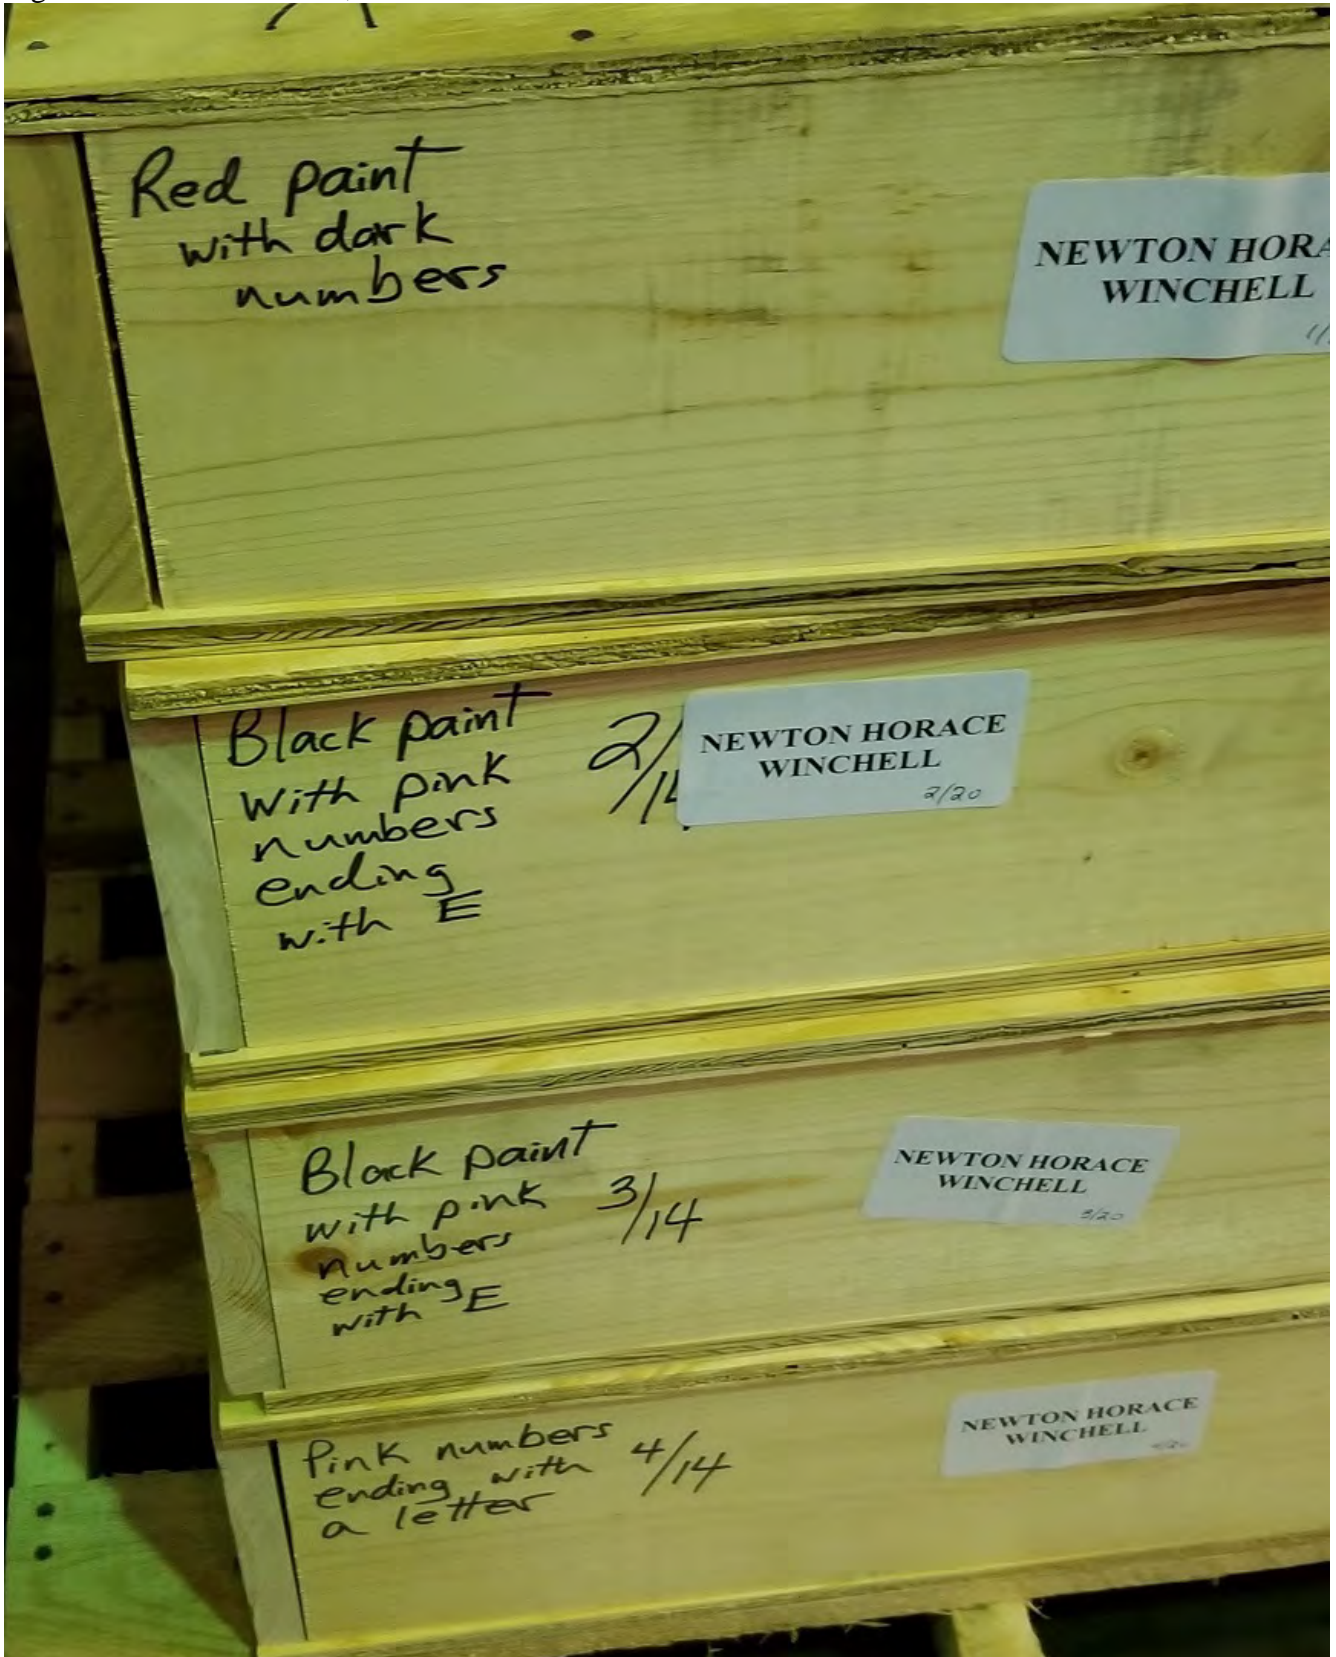 Red paint
with dark
numbers
NEWTON
WINCHELL
Black paint
with pink
numbers
ending
with E
2/
NEWTON HORACE
WINCHELL
2/20
Black paint
with pink
numbers
ending
with E
3/14
NEWTON HORACE
WINCHELL
3/20
Pink numbers
ending with
a letter
4/14
NEWTON HORACE
WINCHELL